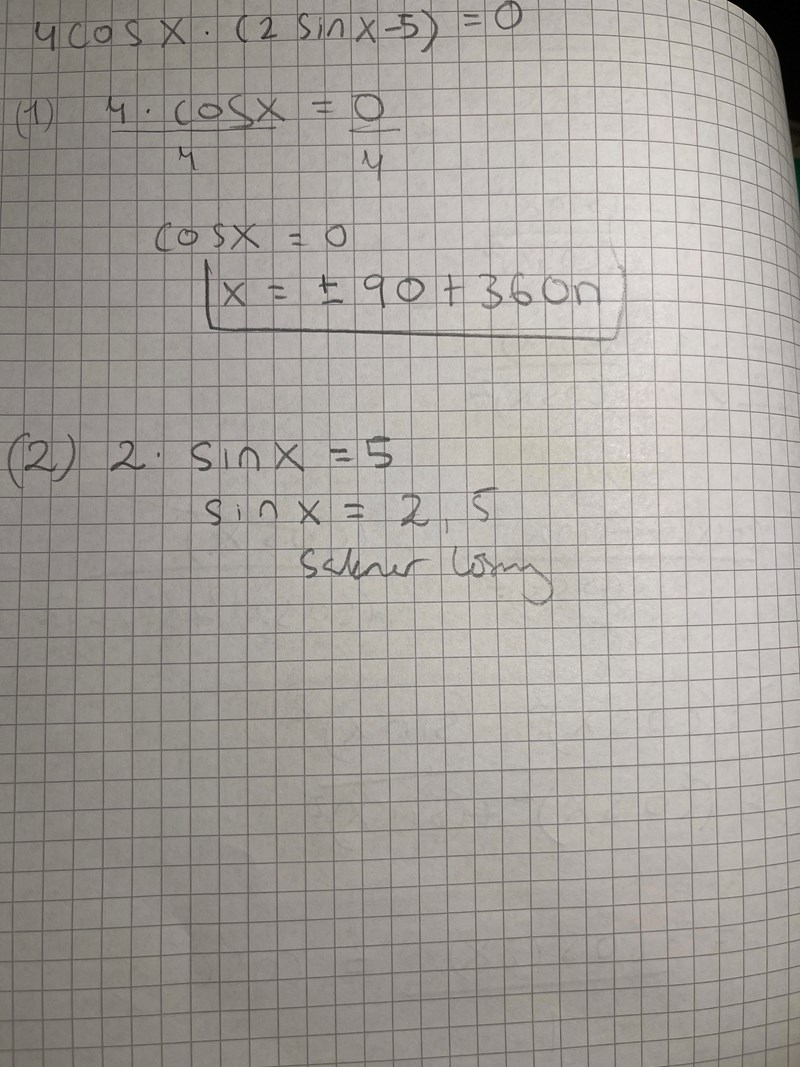 4cosx · (2 sinx-5) = 0
(1) 4 · cosx = 0
4 4
cosx = 0
x = ± 90 + 360n
(2) 2 · sinx = 5
sinx = 2,5
Saknar lösning